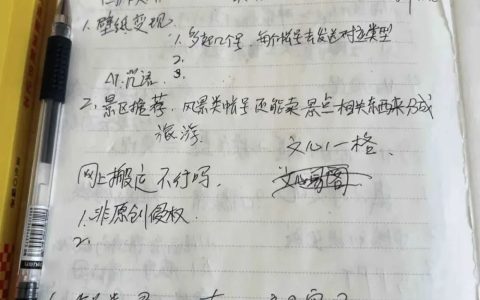 1.壁纸变现
1.多起几个号,每个帐号去发送对应类型
2.
AI.咒语. 3.
2.景区推荐.风景类帐号还能卖景点相关东西来分成
旅游
文心一格.
网上搬运不行吗.
1.非原创侵权.
2.